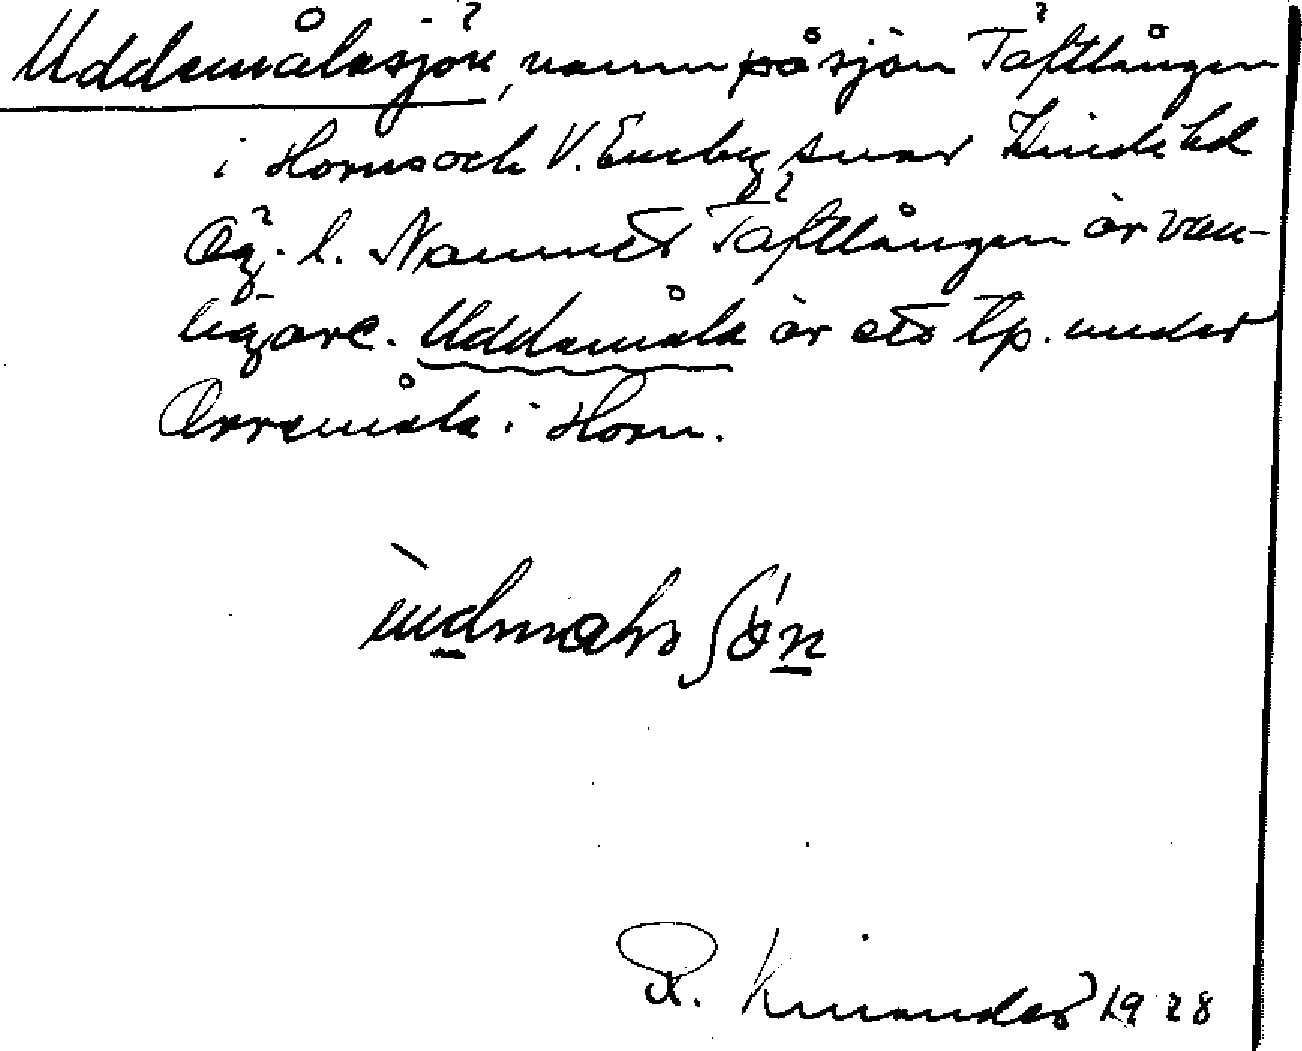 Uddamålasjön, namn på sjön Täftlången
i Horns och V. Eneby snar Kinda hd
Ög. l. Namnet Täftlången är van-
ligare. Uddamåla är ett tp. under
Orremåla i Horn.
R. Kinander 1928